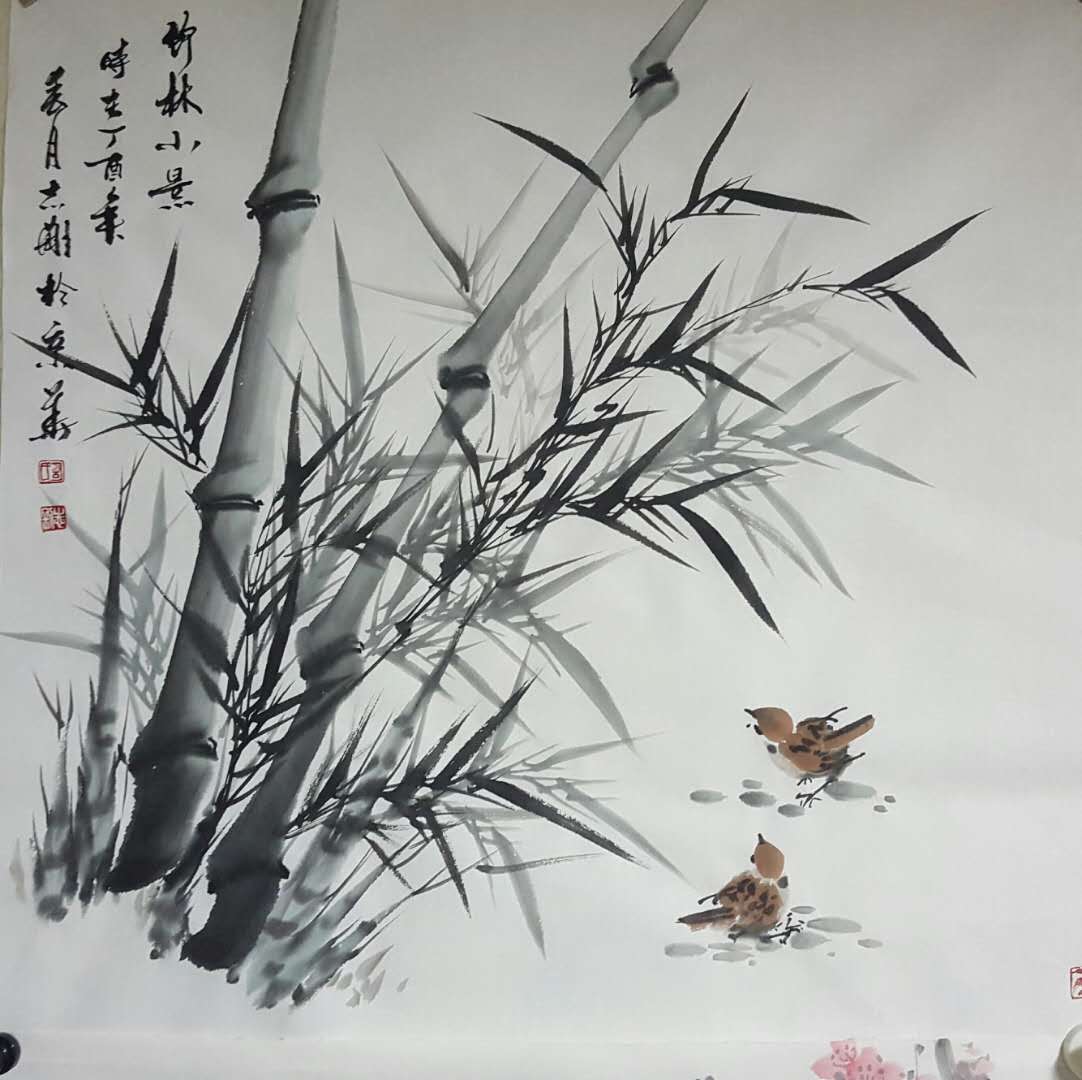 竹林小景
時在丁酉年
春月志刚於京華